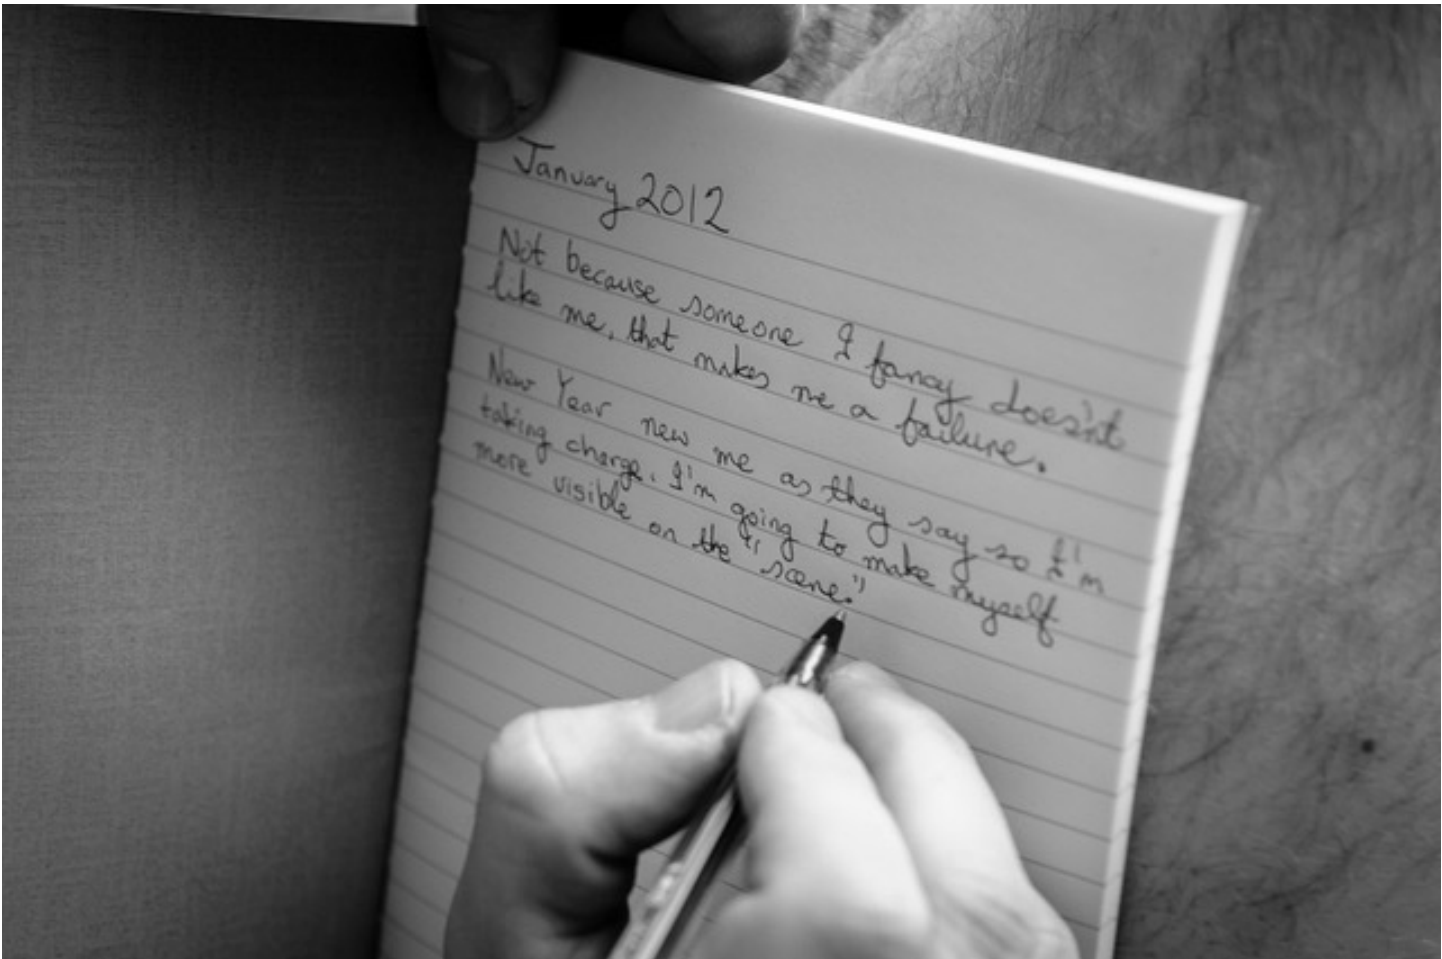 January 2012
Not because someone I fancy doesn't
like me, that makes me a failure.
New Year new me as they say so I'm
taking charge. I'm going to make myself
more visible on the "scene."